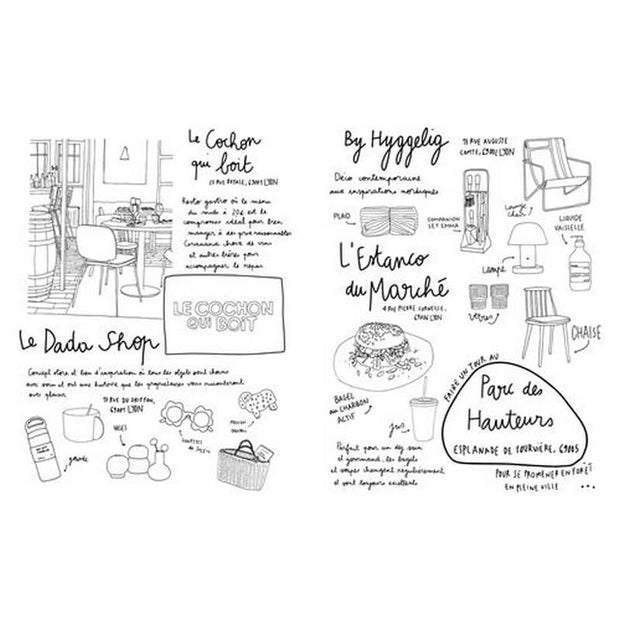 Le Cochon
qui boit
23 RUE ROYALE, 69001 LYON
Resto gastro où le menu
du midi à 20€ est le
compromis idéal pour bien
manger à des prix raisonnables
choix de vin
et autres bières pour
accompagner le repas
LE COCHON
QUI BOIT
Le Dada Shop
Concept store et lieu d'inspiration où tous les objets sont choisis
avec soin et ont une histoire que les propriétaires vous raconteront
avec plaisir
RUE DU GRIFFON,
69001 LYON
gourde
VASES
LUNETTES
DE SOLEIL
By Hyggelig
RUE AUGUSTE
COMTE, 69002 LYON
Déco contemporaine
aux inspirations nordiques
PLAID
COMPARAISON
Lounge
chair
LIQUIDE
VAISSELLE
Lampe
verres
CHAISE
L'Estanco
du Marché
4 RUE PIERRE CORNEILLE,
LYON
BAGEL
AU CHARBON
ACTIF
jus
Parfait pour un dej sain
et gourmand, les bagels
et soupes changent régulièrement
et sont toujours excellents
FAIRE UN TOUR AU
Parc des
Hauteurs
ESPLANADE DE FOURVIÈRE, 69005
POUR SE PROMENER EN FORÊT
EN PLEINE VILLE ...